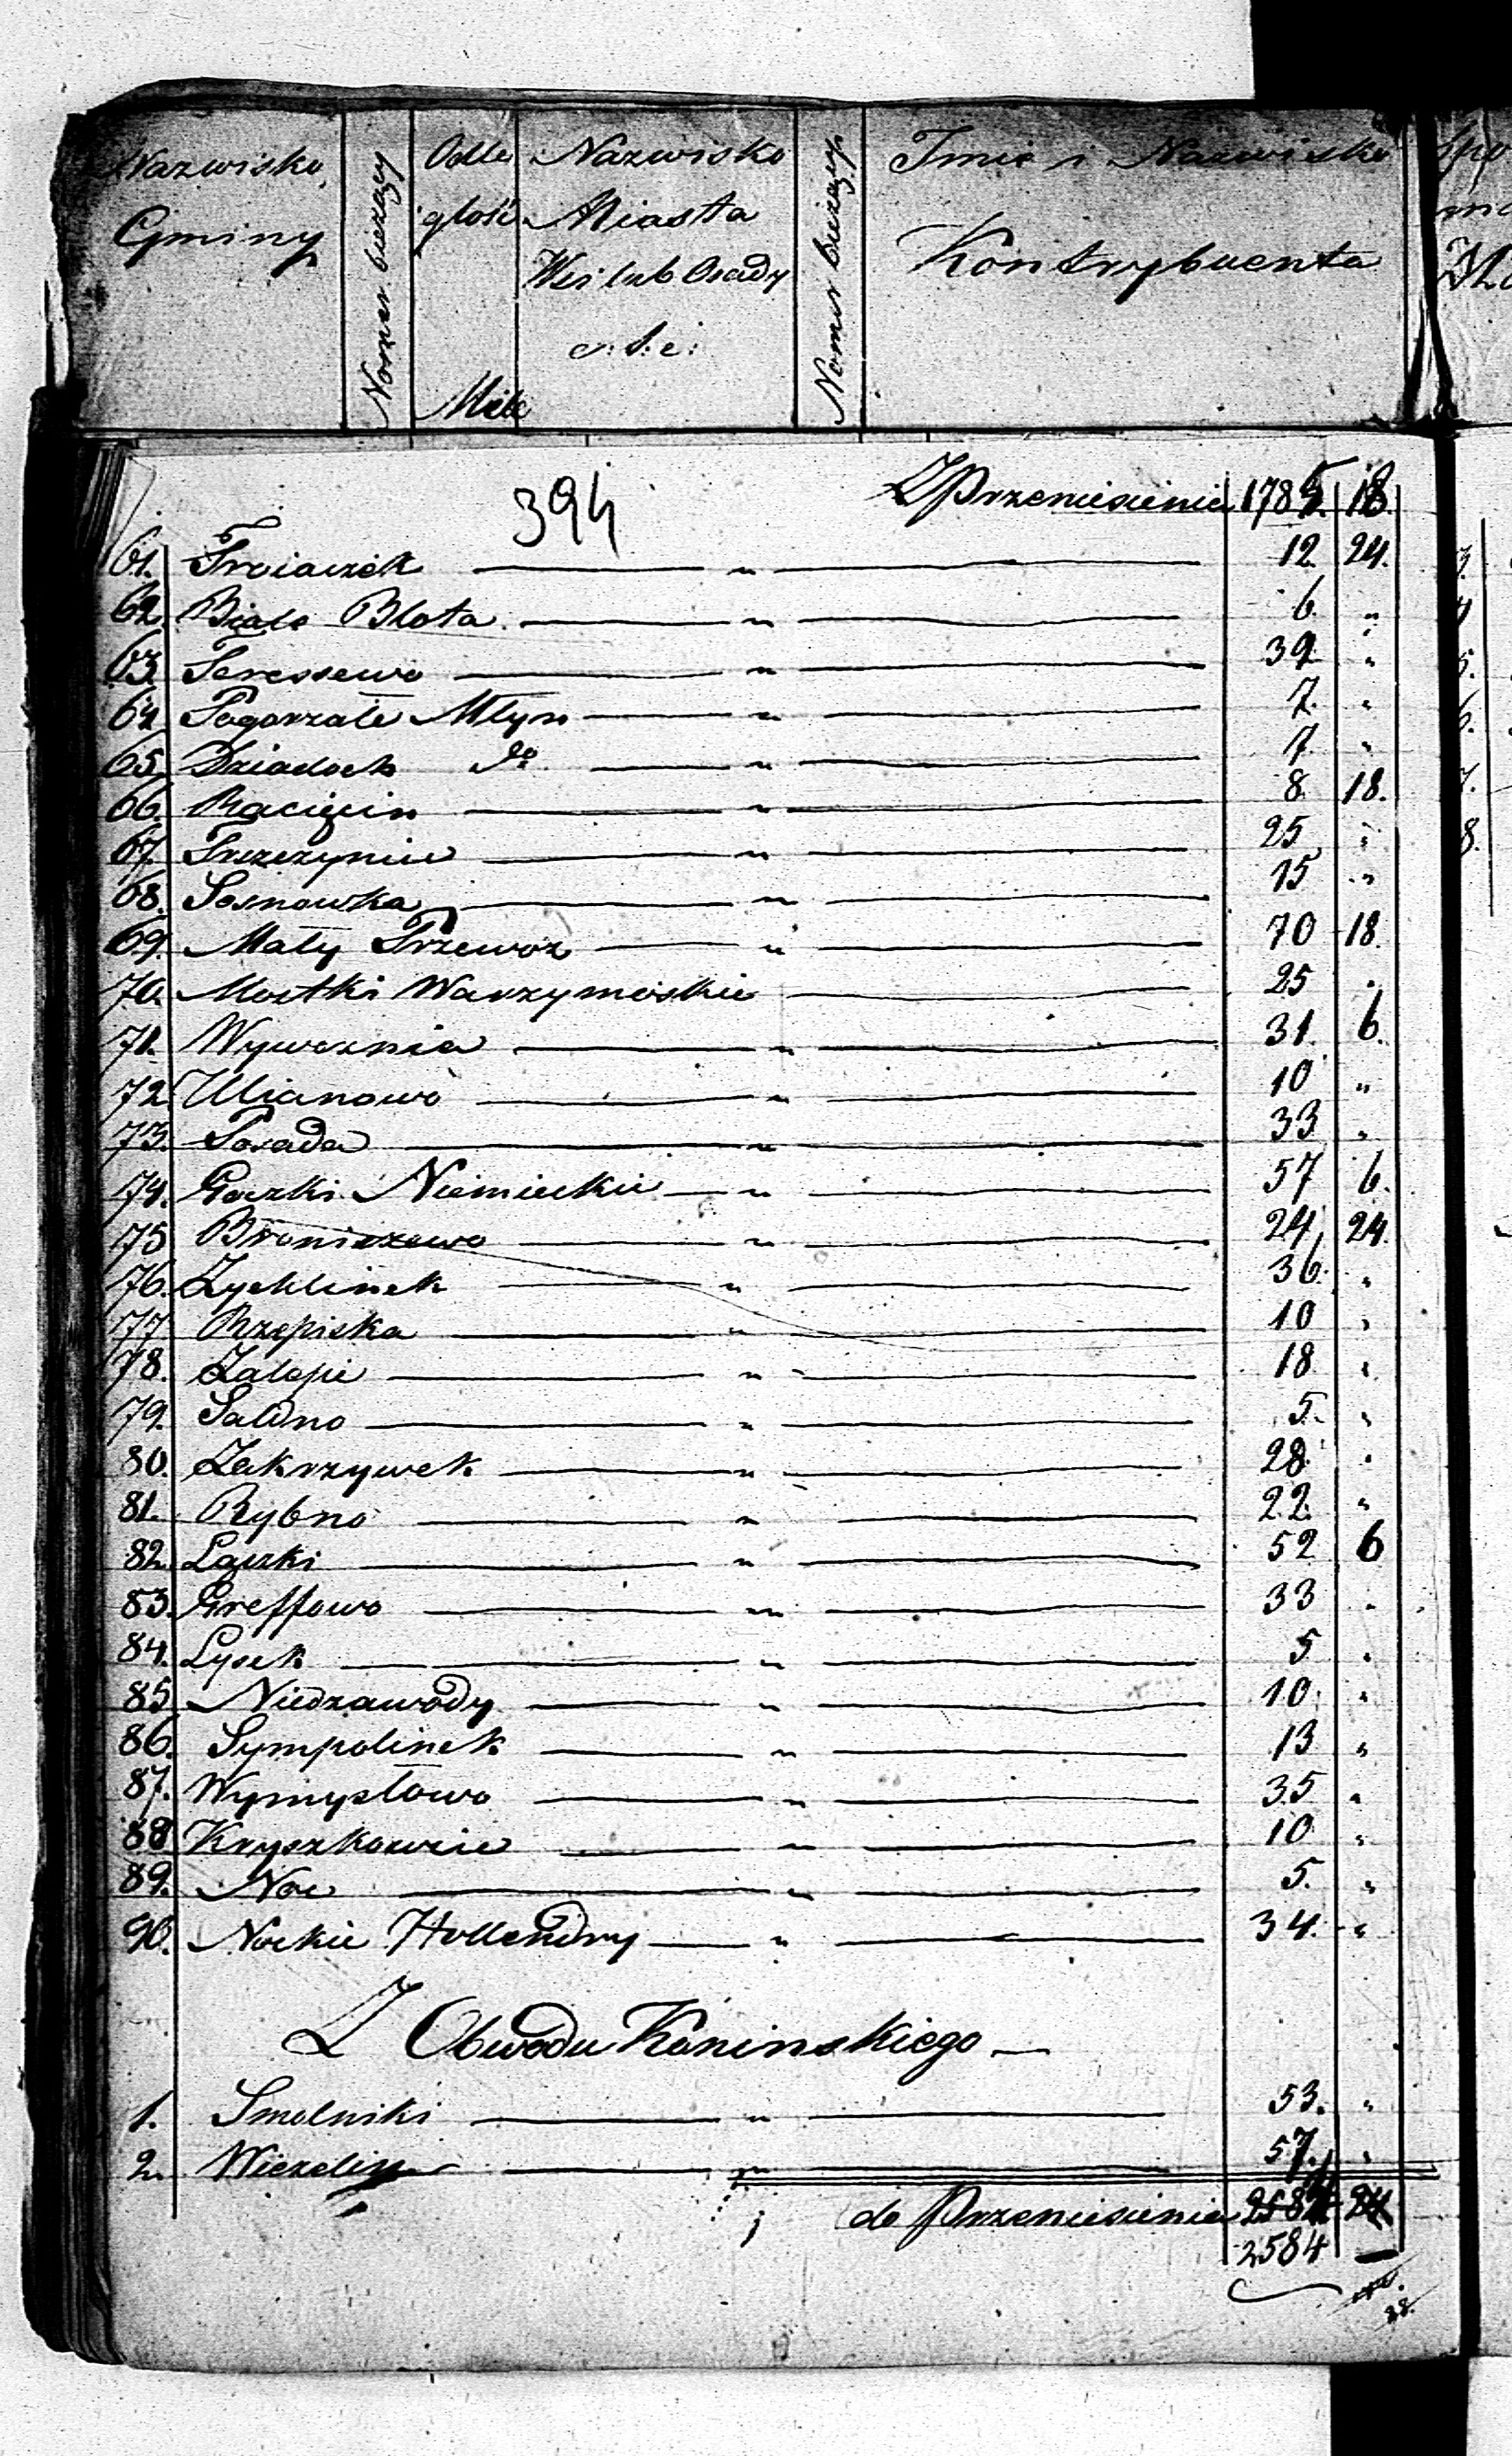 Nazwisko Gminy | Nomer bieżący | Odległość Mile | Nazwisko Miasta Wsi lub Osady | Nomer bieżący | Imie i Nazwisko Kontrybuenta
394 Z Przeniesienia 1785. 18.
61. Troiaczek — „ — 12. 24.
62. Biale Blota. — „ — 6. „
63. Teressewo — „ — 39. „
64. Pogorzale Młyn — „ — 7. „
65. Dziadoch do — „ — 7. „
66. Racięcin — „ — 8. 18.
67. — „ — 25 „
68. Sosnowka — „ — 15 „
69. Mały Przewoz — „ — 70 18.
70. Mostki Warzymoskie — 25 „
71. Wywoznia — „ — 31. 6.
72. Ulianowo — „ — 10 „
73. Posada — „ — 33 „
74. Goczki Niemieckie — „ — 57 6.
75. Broniszewo — „ — 24. 24.
76. Zychlinek — „ — 36. „
77. Rzepiska — „ — 10 „
78. Zalepie — „ — 18 „
79. Salono — „ — 5. „
80. Zakrzywek — „ — 28. „
81. Rybno — „ — 22. „
82. Lączki — „ — 52 6
83. Greffowo — „ — 33 „
84. Lysek — „ — 5 „
85. Niedzawody — „ — 10. „
86. Sympolinek — „ — 13 „
87. Wymysłowo — „ — 35 „
88. Kryszkowice — „ — 10 „
89. Noc — „ — 5. „
90. Nockie Hollendry — „ — 34. „
Z Obwodu Koninskiego —
1. Smolniki — „ — 53. „
2. Wiezelin — „ — 57. „
do Przeniesienia 24
2584 —